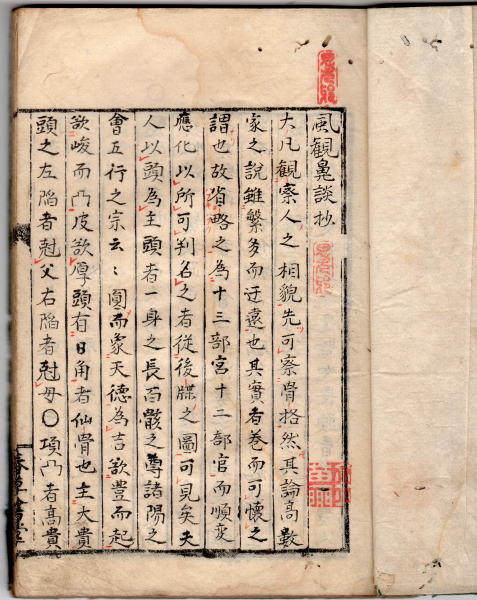 風觀鳧談抄
大凡觀察人之相貌先可察骨格然其論高數
家之說雖繁多而迂遠也其實者卷而可懷之
謂也故省略之為十三部宮十二部官而順変
應化以所可判名之者從後牒之圖可見矣夫
人以頭為主頭者一身之長百骸之尊諸陽之
會五行之宗云々圓而象天德為吉欲豊而起
欲峻而凸皮欲厚頭有日角者仙骨也主大貴
頭之左陷者尅父右陷者尅母〇項凸者高貴